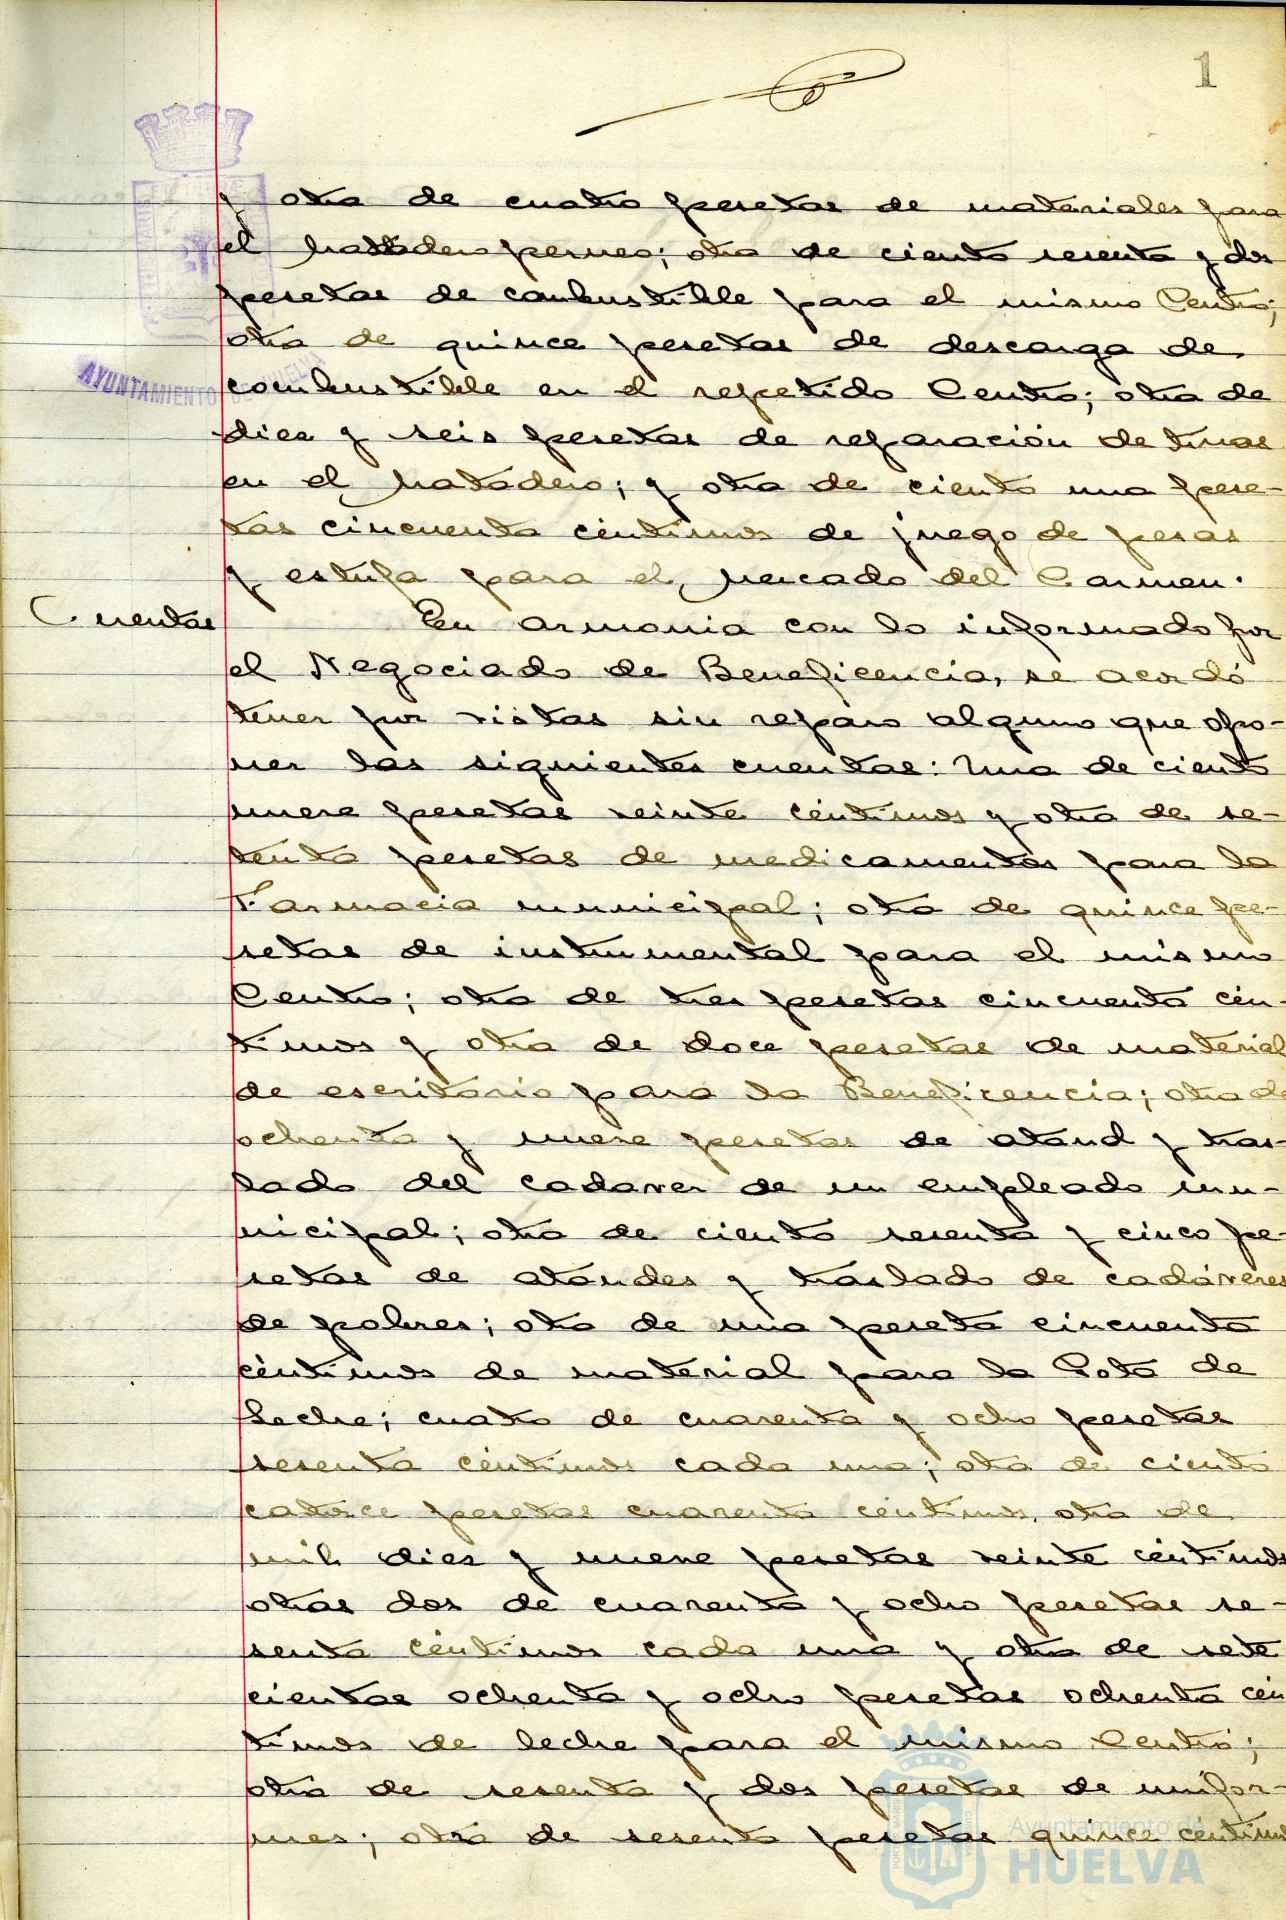 1
y otra de cuatro pesetas de materiales para
el matadero perneo; otra de ciento sesenta y dos
pesetas de combustible para el mismo Centro;
otra de quince pesetas de descarga de
combustible en el repetido Centro; otra de
diez y seis pesetas de reparación de tinas
en el matadero; y otra de ciento una pese-
tas cincuenta céntimos de juego de pesas
y estufa para el mercado del Carmen.
Cuentas
En armonia con lo informado por
el Negociado de Beneficencia, se acordó
tener por vistas sin reparo alguno que opo-
ner las siguientes cuentas: Una de ciento
nueve pesetas veinte céntimos y otra de se-
tenta pesetas de medicamentos para la
Farmacia municipal; otra de quince pe-
setas de instrumental para el mismo
Centro; otra de tres pesetas cincuenta cén-
timos y otra de doce pesetas de material
de escritorio para la Beneficencia; otra de
ochenta y nueve pesetas de ataud y tras-
lado del cadaver de un empleado mu-
nicipal; otra de ciento sesenta y cinco pe-
setas de ataudes y traslado de cadáveres
de pobres; otra de una peseta cincuenta
céntimos de material para la Gota de
Leche; cuatro de cuarenta y ocho pesetas
sesenta céntimos cada una; otra de ciento
catorce pesetas cuarenta céntimos, otra de
mil diez y nueve pesetas veinte céntimos
otras dos de cuarenta y ocho pesetas se-
senta céntimos cada una y otra de sete
cientas ochenta y ocho pesetas ochenta cén
timos de leche para el mismo Centro;
otra de sesenta y dos pesetas de unifor-
mes; otra de sesenta pesetas quince céntimos
AYUNTAMIENTO DE HUELVA
Ayuntamiento de
HUELVA